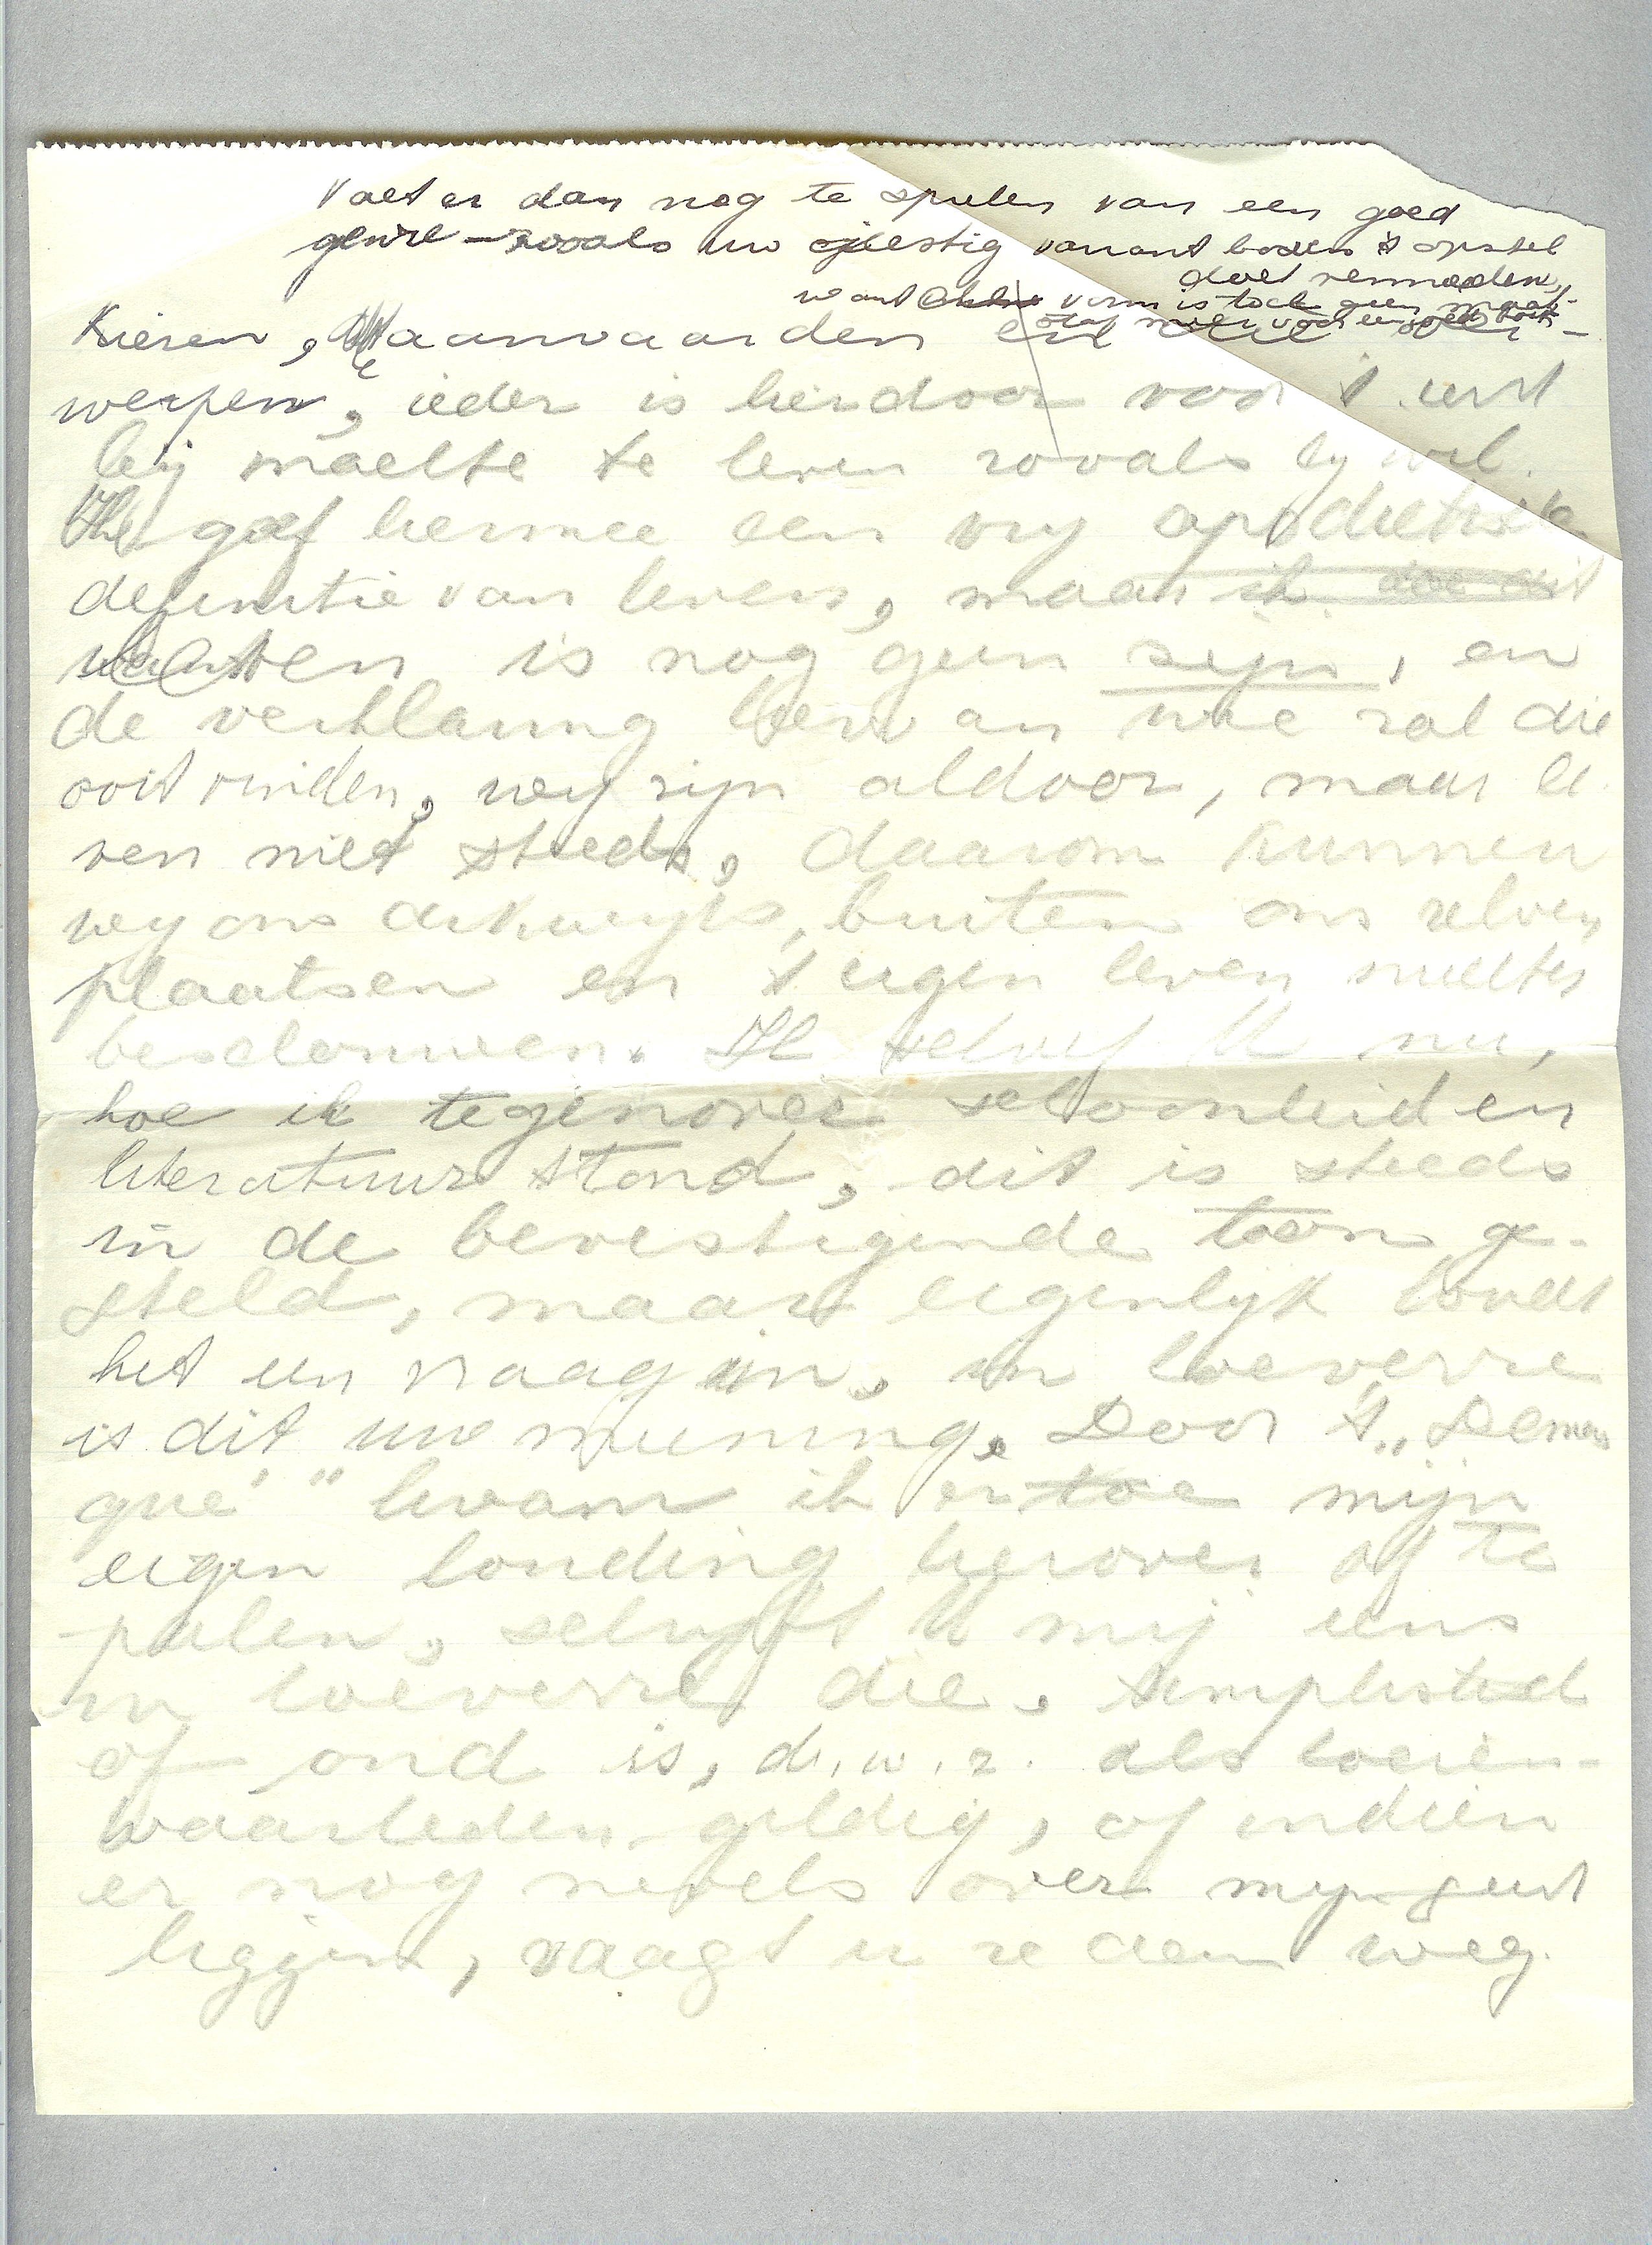 valt er dan nog te spreken van een goed
genre – zooals uw variant boven 't opstel
doet vermoeden,
want vorm is toch geen maat-
staf meer voor een
kiezen, aanvaarden en ver-
werpen, ieder is hierdoor voor 't eerst
bij machte te leven zooals hij wil.
Ik gaf hiermee een vrij apodictische
definitie van leven, maar ik doe dit
weten is nog geen zijn, en
de verklaring hiervan wie zal die
ooit vinden, wij zijn aldoor, maar le-
ven niet steeds, daarom kunnen
wij ons dikwijls, buiten ons zelven
plaatsen en 't eigen leven
beschouwen. Ik schreef U nu,
hoe ik tegenover schoonheid en
literatuur stond, dit is steeds
in de bevestigende toon ge-
steld, maar eigenlijk houdt
het een vraag in, in hoeverre
is dit uw meening. Door 't „Demas-
qué" kwam ik er toe mijn
eigen houding hierover af te
palen, schrijft U mij eens
in hoeverre die, simplistisch
of oud is, d.w.z. als
waarheden geldig, of indien
er nog nevels over mijn geest
liggen, vaagt u ze dan weg.